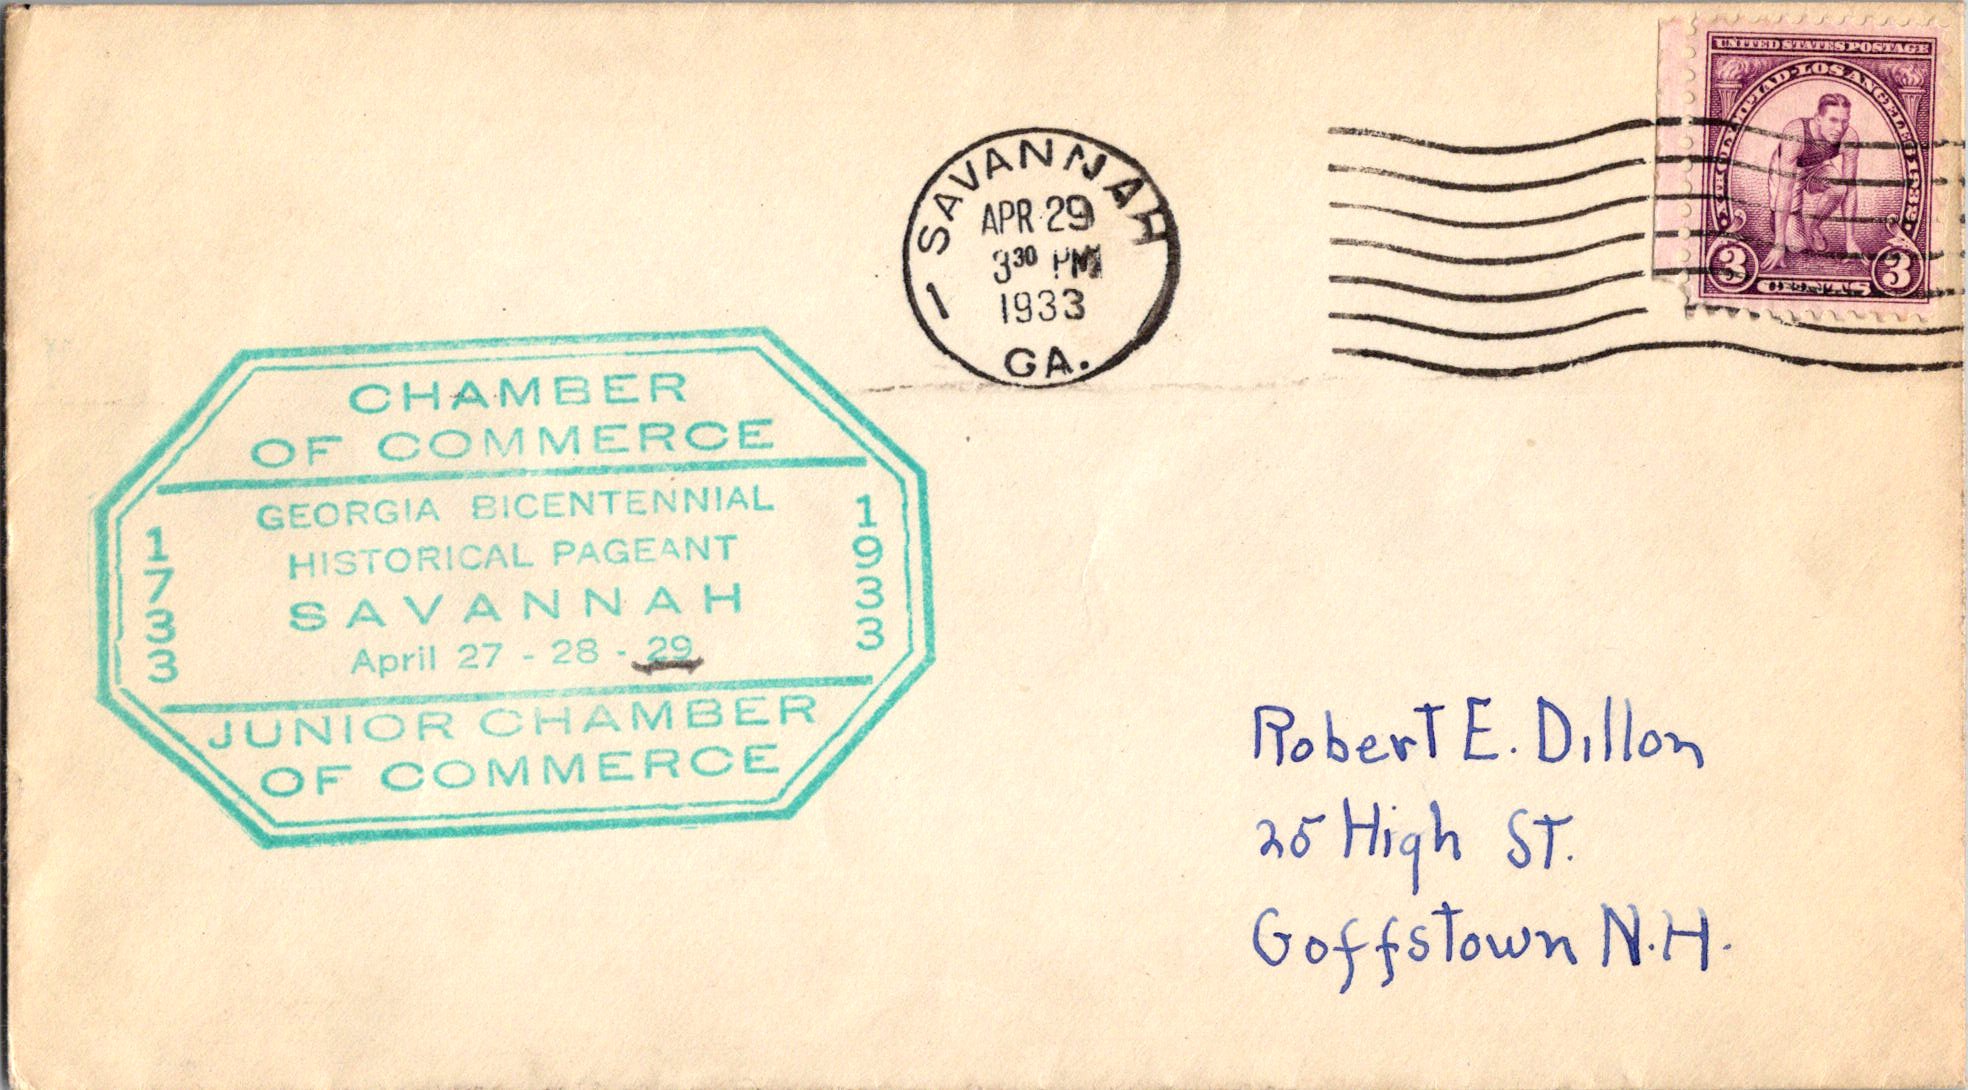 UNITED STATES POSTAGE
OLYMPIAD·LOS ANGELES
3 3
SAVANNAH
APR 29
3 30 PM
1933
1
GA.
CHAMBER
OF COMMERCE
1733
GEORGIA BICENTENNIAL
HISTORICAL PAGEANT
SAVANNAH
April 27 - 28 - 29
1933
JUNIOR CHAMBER
OF COMMERCE
Robert E. Dillon
25 High St.
Goffstown N.H.